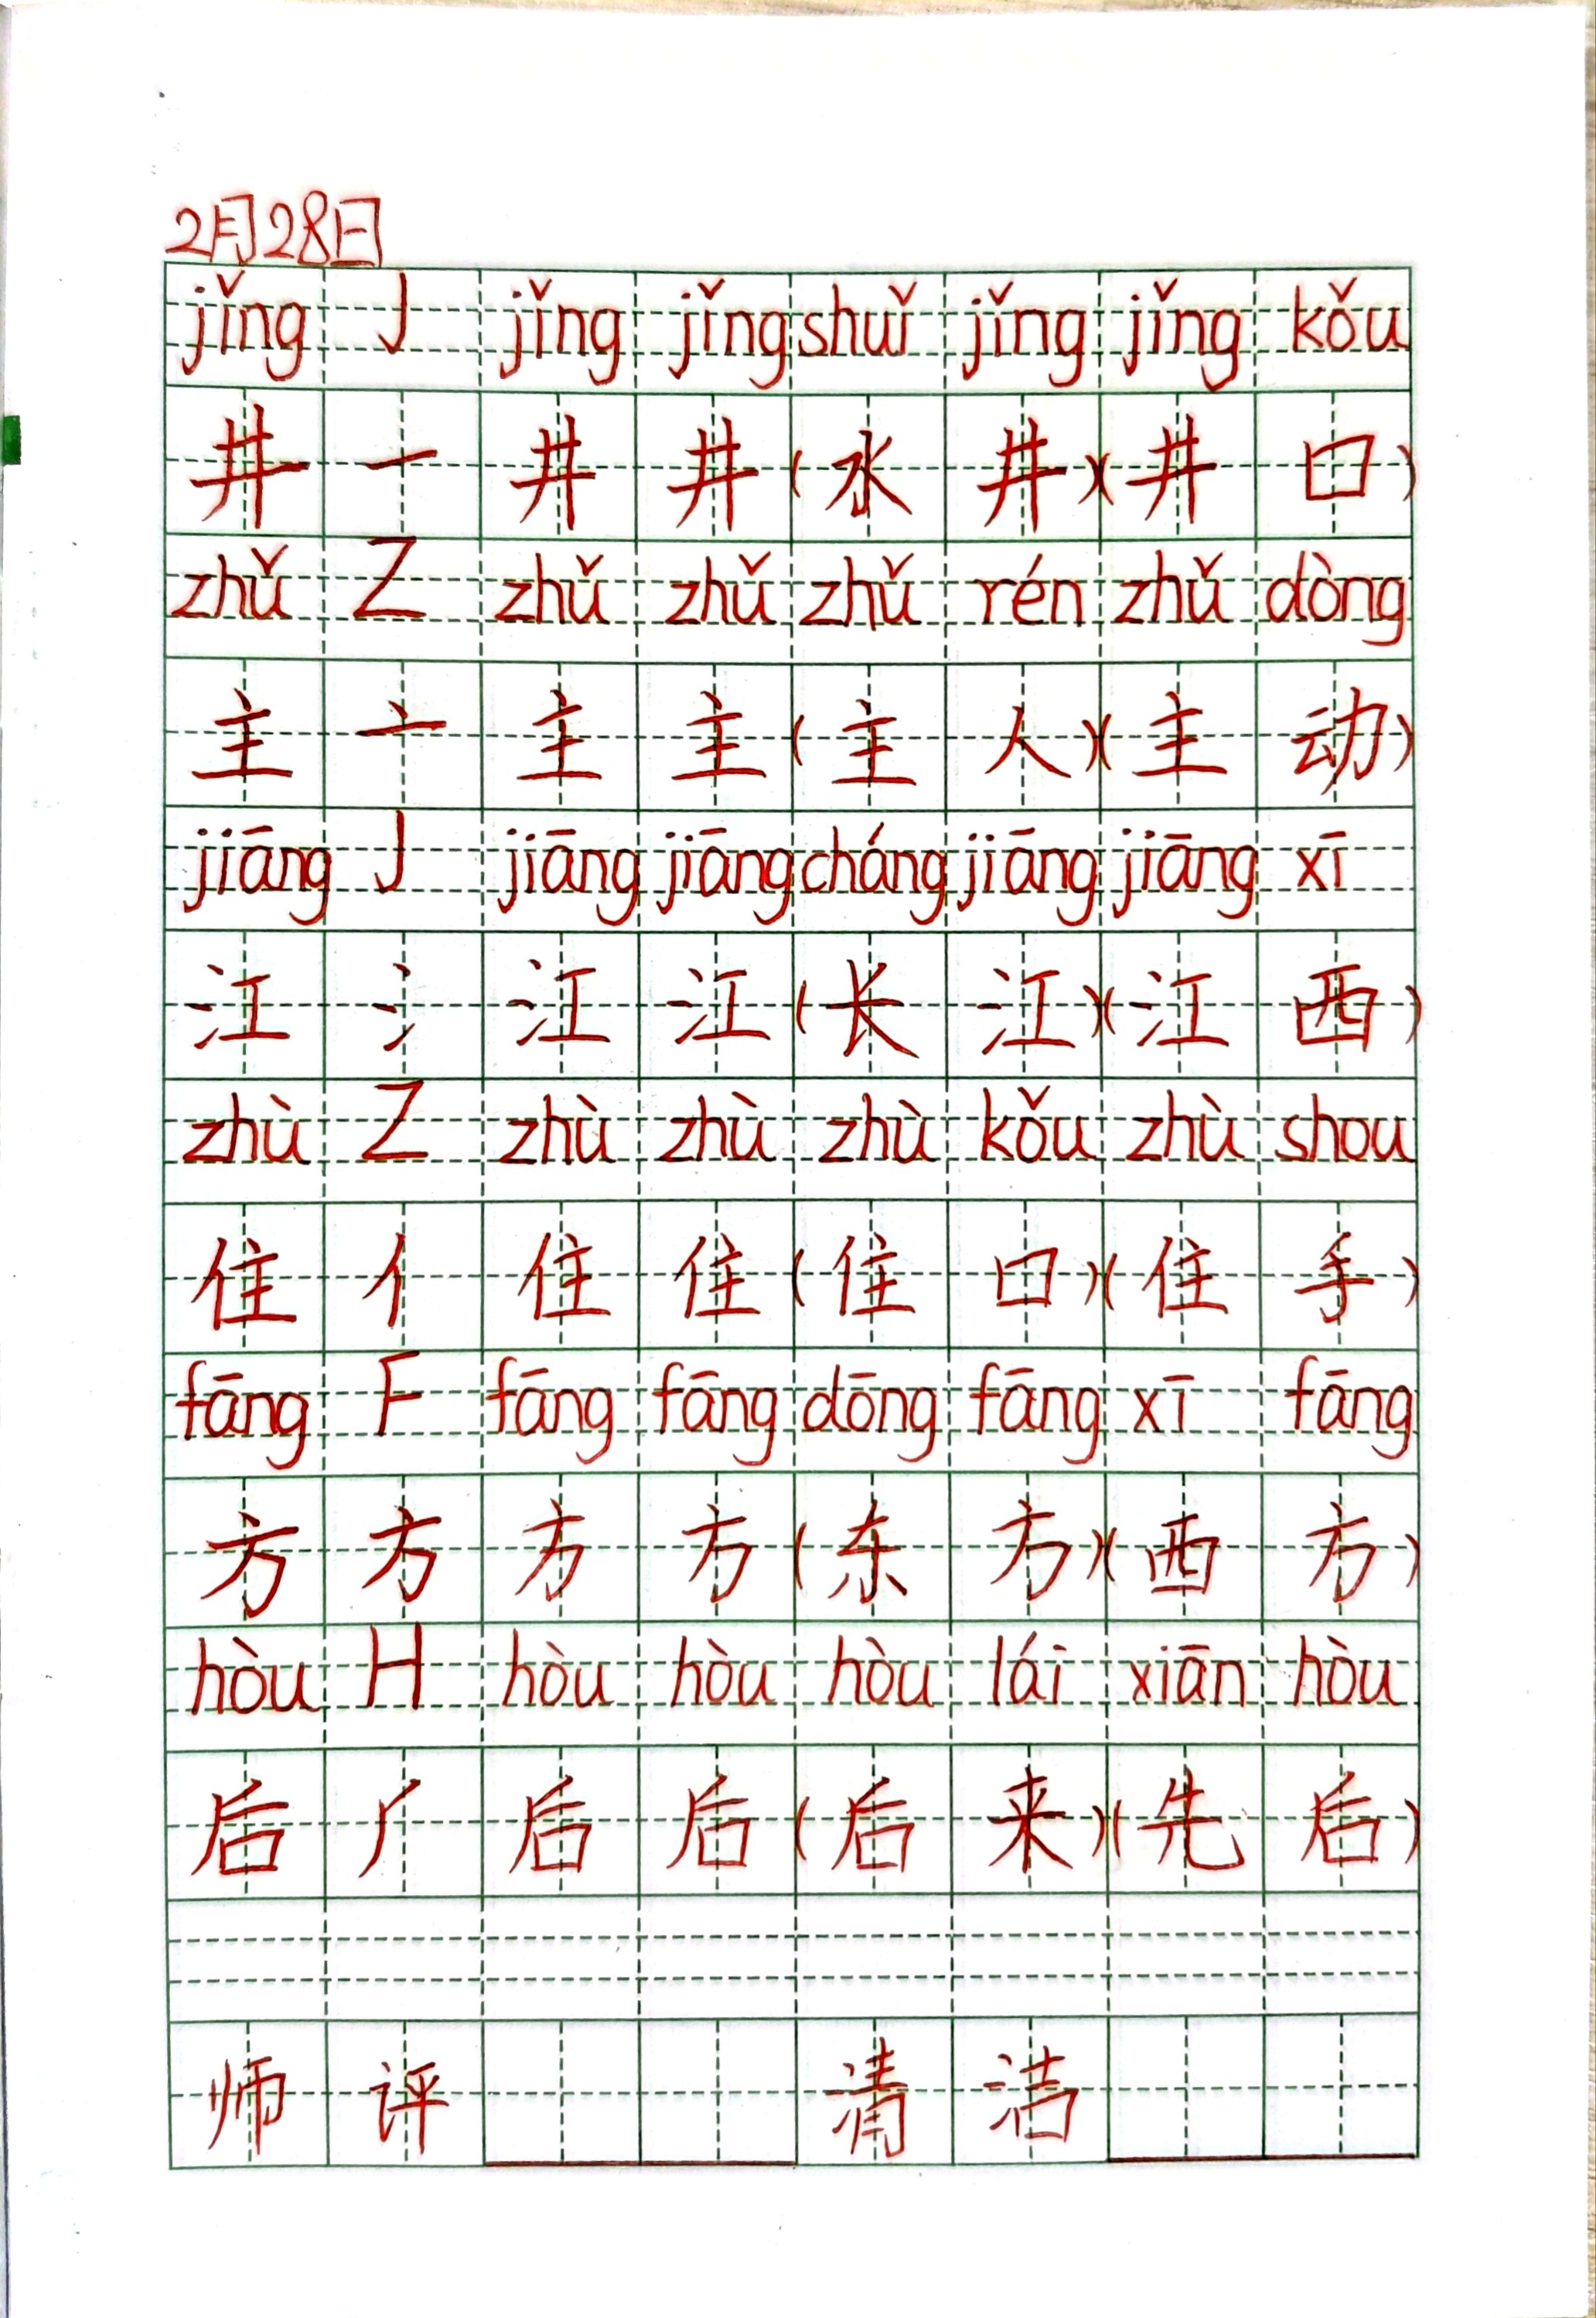 2月28日
jǐng J jǐng jǐng shuǐ jǐng jǐng kǒu
井 一 井 井 (水 井)(井 口)
zhǔ Z zhǔ zhǔ zhǔ rén zhǔ dòng
主 亠 主 主 (主 人)(主 动)
jiāng J jiāng jiāng cháng jiāng jiāng xī
江 氵 江 江 (长 江)(江 西)
zhù Z zhù zhù zhù kǒu zhù shou
住 亻 住 住 (住 口)(住 手)
fāng F fāng fāng dōng fāng xī fāng
方 方 方 方 (东 方)(西 方)
hòu H hòu hòu hòu lái xiān hòu
后 𠂆 后 后 (后 来)(先 后)
师 评 清 洁